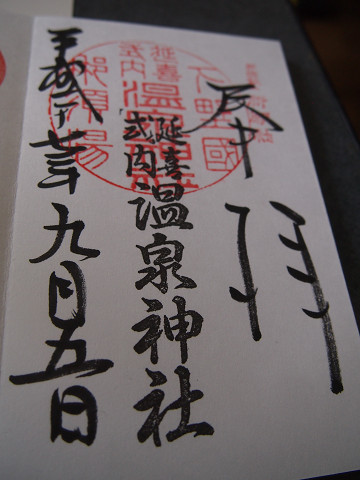 奉拝
延喜
式内
温泉神社
平成廿七年九月五日
下野國
延喜
式内
温泉神社
那須湯